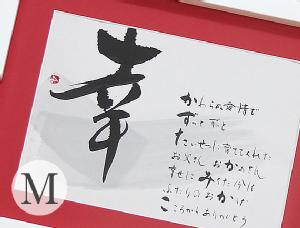 幸
かわらぬ愛情で
ずっとずっと
たいせつに育ててくれた
お父さん おかあさん
幸せにみくだけは
ふたりのおかげ
こころからありがとう
M